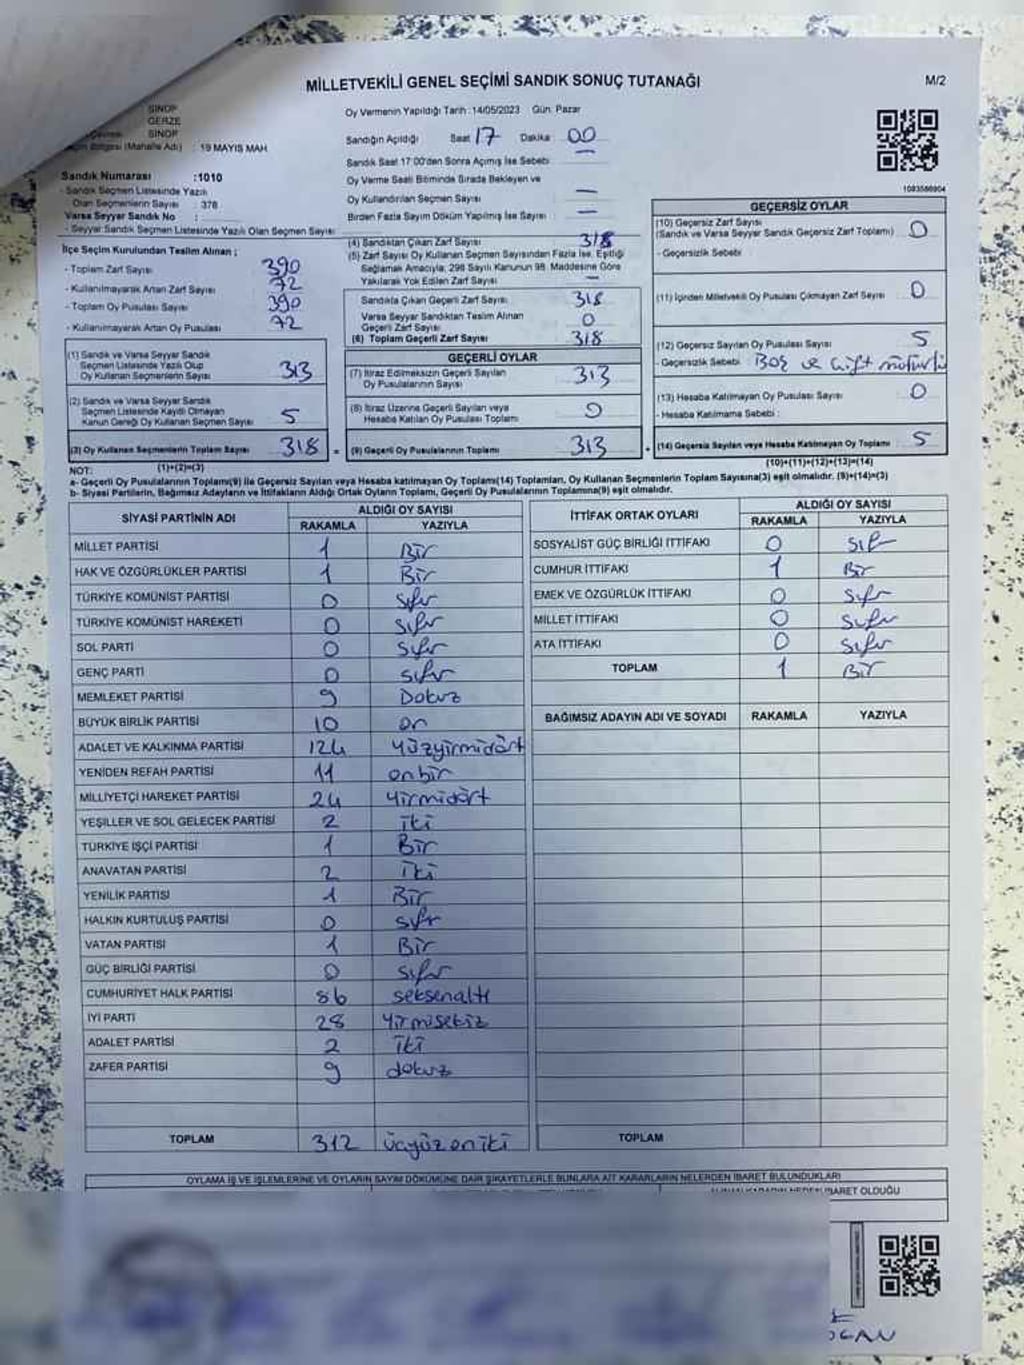 MİLLETVEKİLİ GENEL SEÇİMİ SANDIK SONUÇ TUTANAĞI
M/2
SİNOP
GERZE
SİNOP
(Mahalle Adı) : 19 MAYIS MAH
Sandık Numarası :1010
- Sandık Seçmen Listesinde Yazılı
Olan Seçmenlerin Sayısı : 378
Varsa Seyyar Sandık No :
- Seyyar Sandık Seçmen Listesinde Yazılı Olan Seçmen Sayısı
İlçe Seçim Kurulundan Teslim Alınan ;
- Toplam Zarf Sayısı 390
- Kullanılmayarak Artan Zarf Sayısı 72
- Toplam Oy Pusulası Sayısı 390
- Kullanılmayarak Artan Oy Pusulası 72
(1) Sandık ve Varsa Seyyar Sandık
Seçmen Listesinde Yazılı Olup
Oy Kullanan Seçmenlerin Sayısı 313
(2) Sandık ve Varsa Seyyar Sandık
Seçmen Listesinde Kayıtlı Olmayan
Kanun Gereği Oy Kullanan Seçmen Sayısı 5
(3) Oy Kullanan Seçmenlerin Toplam Sayısı 318 =
(1)+(2)=(3)
Oy Vermenin Yapıldığı Tarih :14/05/2023 Gün: Pazar
Sandığın Açıldığı Saat 17 Dakika 00
Sandık Saat 17:00'den Sonra Açılmış İse Sebebi —
Oy Verme Saati Bitiminde Sırada Bekleyen ve
Oy Kullandırılan Seçmen Sayısı —
Birden Fazla Sayım Döküm Yapılmış İse Sayısı —
(4) Sandıktan Çıkan Zarf Sayısı 318
(5) Zarf Sayısı Oy Kullanan Seçmen Sayısından Fazla İse, Eşitliği
Sağlamak Amacıyla; 298 Sayılı Kanunun 98. Maddesine Göre
Yakılarak Yok Edilen Zarf Sayısı —
Sandıkta Çıkan Geçerli Zarf Sayısı 318
Varsa Seyyar Sandıktan Teslim Alınan
Geçerli Zarf Sayısı 0
(6) Toplam Geçerli Zarf Sayısı 318
GEÇERLİ OYLAR
(7) İtiraz Edilmeksizin Geçerli Sayılan
Oy Pusulalarının Sayısı 313
(8) İtiraz Üzerine Geçerli Sayılan veya
Hesaba Katılan Oy Pusulası Toplamı 0
(9) Geçerli Oy Pusulalarının Toplamı 313 +
1093566904
GEÇERSİZ OYLAR
(10) Geçersiz Zarf Sayısı
(Sandık ve Varsa Seyyar Sandık Geçersiz Zarf Toplamı) 0
- Geçersizlik Sebebi
(11) İçinden Milletvekili Oy Pusulası Çıkmayan Zarf Sayısı 0
(12) Geçersiz Sayılan Oy Pusulası Sayısı 5
- Geçersizlik Sebebi : Boş ve çift mühürlü
(13) Hesaba Katılmayan Oy Pusulası Sayısı 0
- Hesaba Katılmama Sebebi :
(14) Geçersiz Sayılan veya Hesaba Katılmayan Oy Toplamı 5
(10)+(11)+(12)+(13)=(14)
NOT:
a- Geçerli Oy Pusulalarının Toplamı(9) ile Geçersiz Sayılan veya Hesaba katılmayan Oy Toplamı(14) Toplamları, Oy Kullanan Seçmenlerin Toplam Sayısına(3) eşit olmalıdır. (9)+(14)=(3)
b- Siyasi Partilerin, Bağımsız Adayların ve İttifakların Aldığı Ortak Oyların Toplamı, Geçerli Oy Pusulalarının Toplamına(9) eşit olmalıdır.
SİYASİ PARTİNİN ADI ALDIĞI OY SAYISI
RAKAMLA YAZIYLA
MİLLET PARTİSİ 1 Bir
HAK VE ÖZGÜRLÜKLER PARTİSİ 1 Bir
TÜRKİYE KOMÜNİST PARTİSİ 0 sıfır
TÜRKİYE KOMÜNİST HAREKETİ 0 sıfır
SOL PARTİ 0 sıfır
GENÇ PARTİ 0 sıfır
MEMLEKET PARTİSİ 9 Dokuz
BÜYÜK BİRLİK PARTİSİ 10 on
ADALET VE KALKINMA PARTİSİ 124 yüzyirmidört
YENİDEN REFAH PARTİSİ 11 onbir
MİLLİYETÇİ HAREKET PARTİSİ 24 Yirmidört
YEŞİLLER VE SOL GELECEK PARTİSİ 2 iki
TÜRKİYE İŞÇİ PARTİSİ 1 Bir
ANAVATAN PARTİSİ 2 iki
YENİLİK PARTİSİ 1 Bir
HALKIN KURTULUŞ PARTİSİ 0 sıfır
VATAN PARTİSİ 1 Bir
GÜÇ BİRLİĞİ PARTİSİ 0 sıfır
CUMHURİYET HALK PARTİSİ 86 seksenaltı
İYİ PARTİ 28 Yirmisekiz
ADALET PARTİSİ 2 iki
ZAFER PARTİSİ 9 dokuz
TOPLAM 312 üçyüzoniki
İTTİFAK ORTAK OYLARI ALDIĞI OY SAYISI
RAKAMLA YAZIYLA
SOSYALİST GÜÇ BİRLİĞİ İTTİFAKI 0 sıfır
CUMHUR İTTİFAKI 1 Bir
EMEK VE ÖZGÜRLÜK İTTİFAKI 0 sıfır
MİLLET İTTİFAKI 0 sıfır
ATA İTTİFAKI 0 sıfır
TOPLAM 1 Bir
BAĞIMSIZ ADAYIN ADI VE SOYADI RAKAMLA YAZIYLA
TOPLAM
OYLAMA İŞ VE İŞLEMLERİNE VE OYLARIN SAYIM DÖKÜMÜNE DAİR ŞİKAYETLERLE BUNLARA AİT KARARLARIN NELERDEN İBARET BULUNDUKLARI
İBARET OLDUĞU